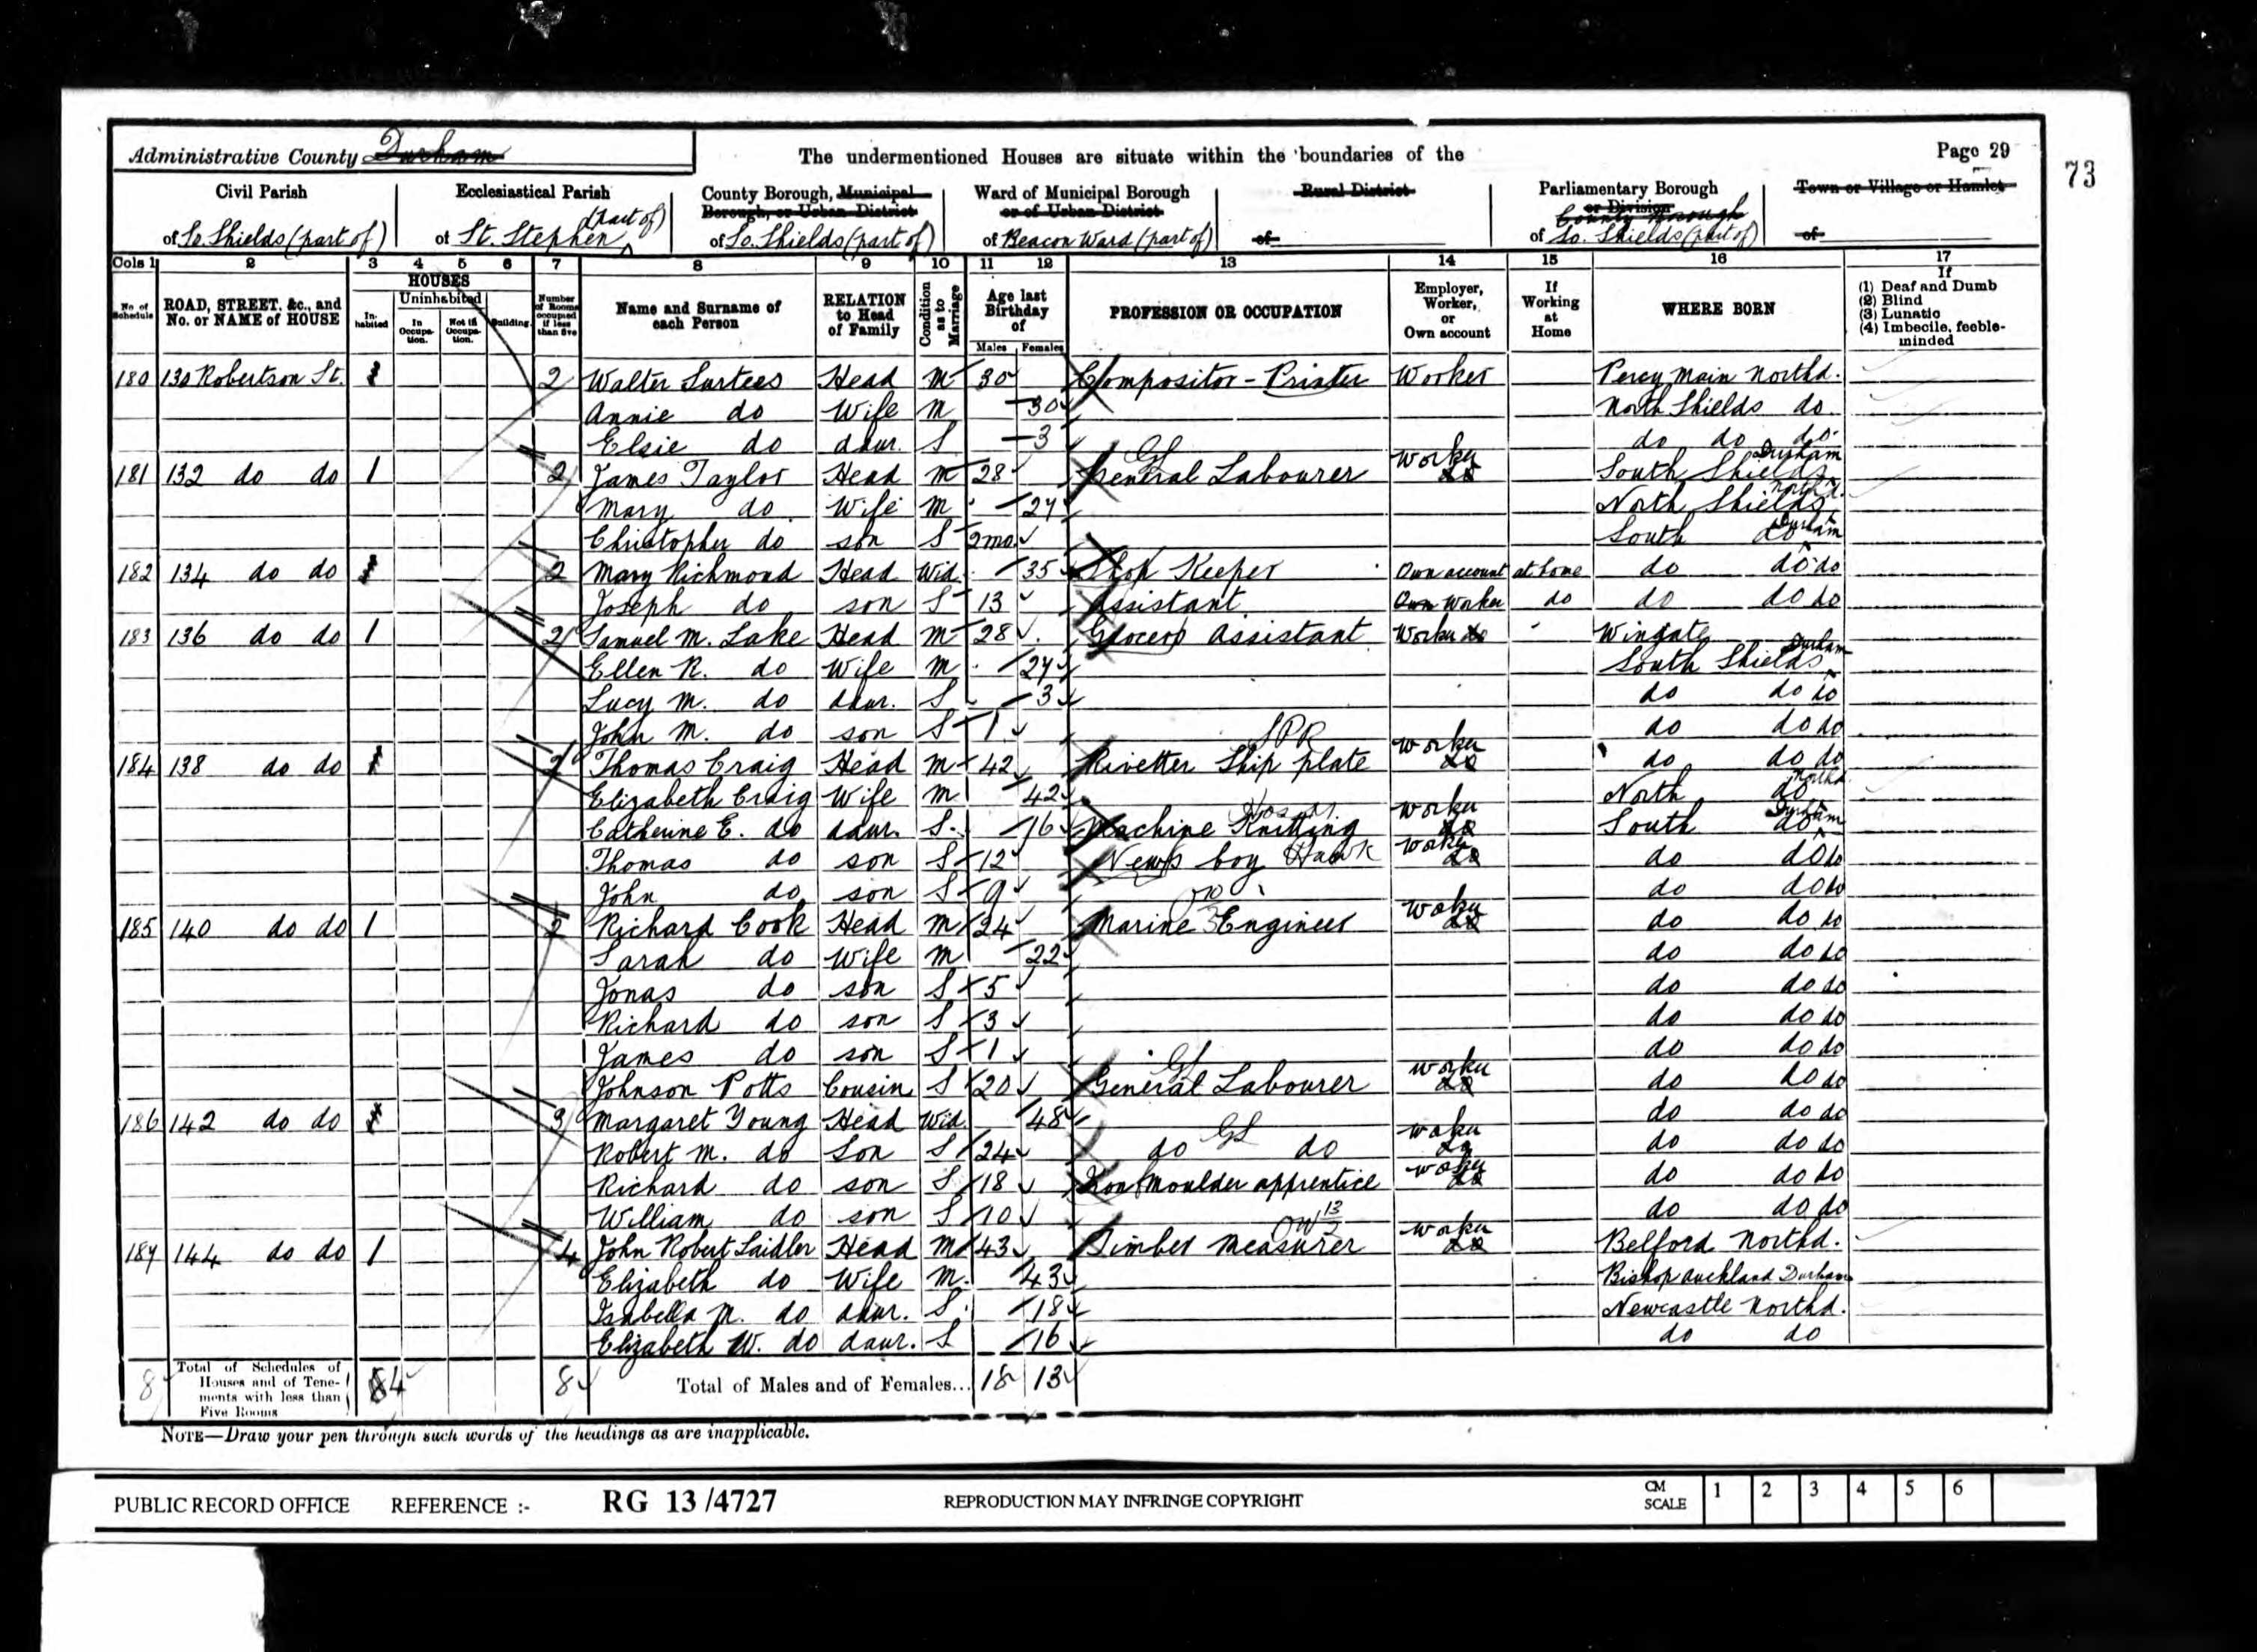 Administrative County Durham
The undermentioned Houses are situate within the boundaries of the
Page 29
73
Civil Parish
of So. Shields (part of)
Ecclesiastical Parish
of St. Stephen (Part of)
County Borough, Municipal Borough, or Urban District
of So. Shields (part of)
Ward of Municipal Borough or of Urban District
of Beacon Ward (part of)
Rural District
of
Parliamentary Borough or Division
County Borough
of So. Shields (part of)
Town or Village or Hamlet
of
Cols 1 2 3 4 5 6 7 8 9 10 11 12 13 14 15 16 17
No. of Schedule
ROAD, STREET, &c., and No. or NAME of HOUSE
HOUSES
In-habited
Uninhabited
In Occupa-tion.
Not in Occupa-tion.
Building.
Number of Rooms occupied if less than five
Name and Surname of each Person
RELATION to Head of Family
Condition as to Marriage
Age last Birthday of
Males Females
PROFESSION OR OCCUPATION
Employer, Worker, or Own account
If Working at Home
WHERE BORN
If
(1) Deaf and Dumb
(2) Blind
(3) Lunatic
(4) Imbecile, feeble-minded
180 130 Robertson St. 1 2 Walter Surtees Head M 30 Compositor - Printer Worker Percy Main Northd.
Annie do Wife M 30 North Shields do
Elsie do daur. S 3 do do do
181 132 do do 1 2 James Taylor Head M 28 General Labourer Gl Worker do South Shields Durham
Mary do Wife M 27 North Shields Northd.
Christopher do son S 2mo South do Durham
182 134 do do 2 Mary Richmond Head Wid. 35 Shop Keeper Own account at home do do do
Joseph do son S 13 Assistant Own Worker do do do do
183 136 do do 1 2 Samuel M. Lake Head M 28 Grocers Assistant Worker do Wingate
Ellen R. do Wife M 27 South Shields Durham
Lucy M. do daur. S 3 do do do
John M. do son S 1 do do do
184 138 do do 1 2 Thomas Craig Head M 42 Rivetter Ship plate SPR Worker do do do do
Elizabeth Craig Wife M 42 North do Northd
Catherine E. do daur. S 16 Machine Knitting Worker do South do Durham
Thomas do son S 12 News boy Hawk Worker do do do do
John do son S 9 do do do
185 140 do do 1 2 Richard Cook Head M 24 Marine Engineer Worker do do do do
Sarah do Wife M 22 do do do
Jonas do son S 5 do do do
Richard do son S 3 do do do
James do son S 1 do do do
Johnson Potts Cousin S 20 General Labourer Gl Worker do do do do
186 142 do do 3 Margaret Young Head Wid. 48 do do do
Robert M. do Son S 24 do do GL Worker do do do do
Richard do son S 18 Iron Moulder apprentice Worker do do do do
William do son S 10 do do do
187 144 do do 1 4 John Robert Laidler Head M 43 Timber Measurer Worker do Belford Northd.
Elizabeth do Wife M. 43 Bishop Auckland Durham
Isabella M. do daur. S 18 Newcastle Northd.
Elizabeth W. do daur. S 16 do do
8 Total of Schedules of Houses and of Tene-ments with less than Five Rooms 84 8 Total of Males and of Females... 18 13
NOTE—Draw your pen through such words of the headings as are inapplicable.
PUBLIC RECORD OFFICE REFERENCE :- RG 13/4727 REPRODUCTION MAY INFRINGE COPYRIGHT CM SCALE 1 2 3 4 5 6